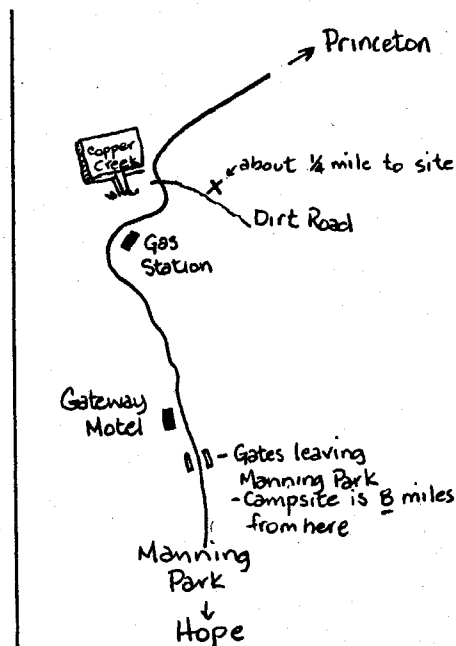 Princeton
Copper
Creek
about ¼ mile to site
Dirt Road
Gas
Station
Gateway
Motel
- Gates leaving
Manning Park
- Campsite is 8 miles
from here
Manning
Park
Hope